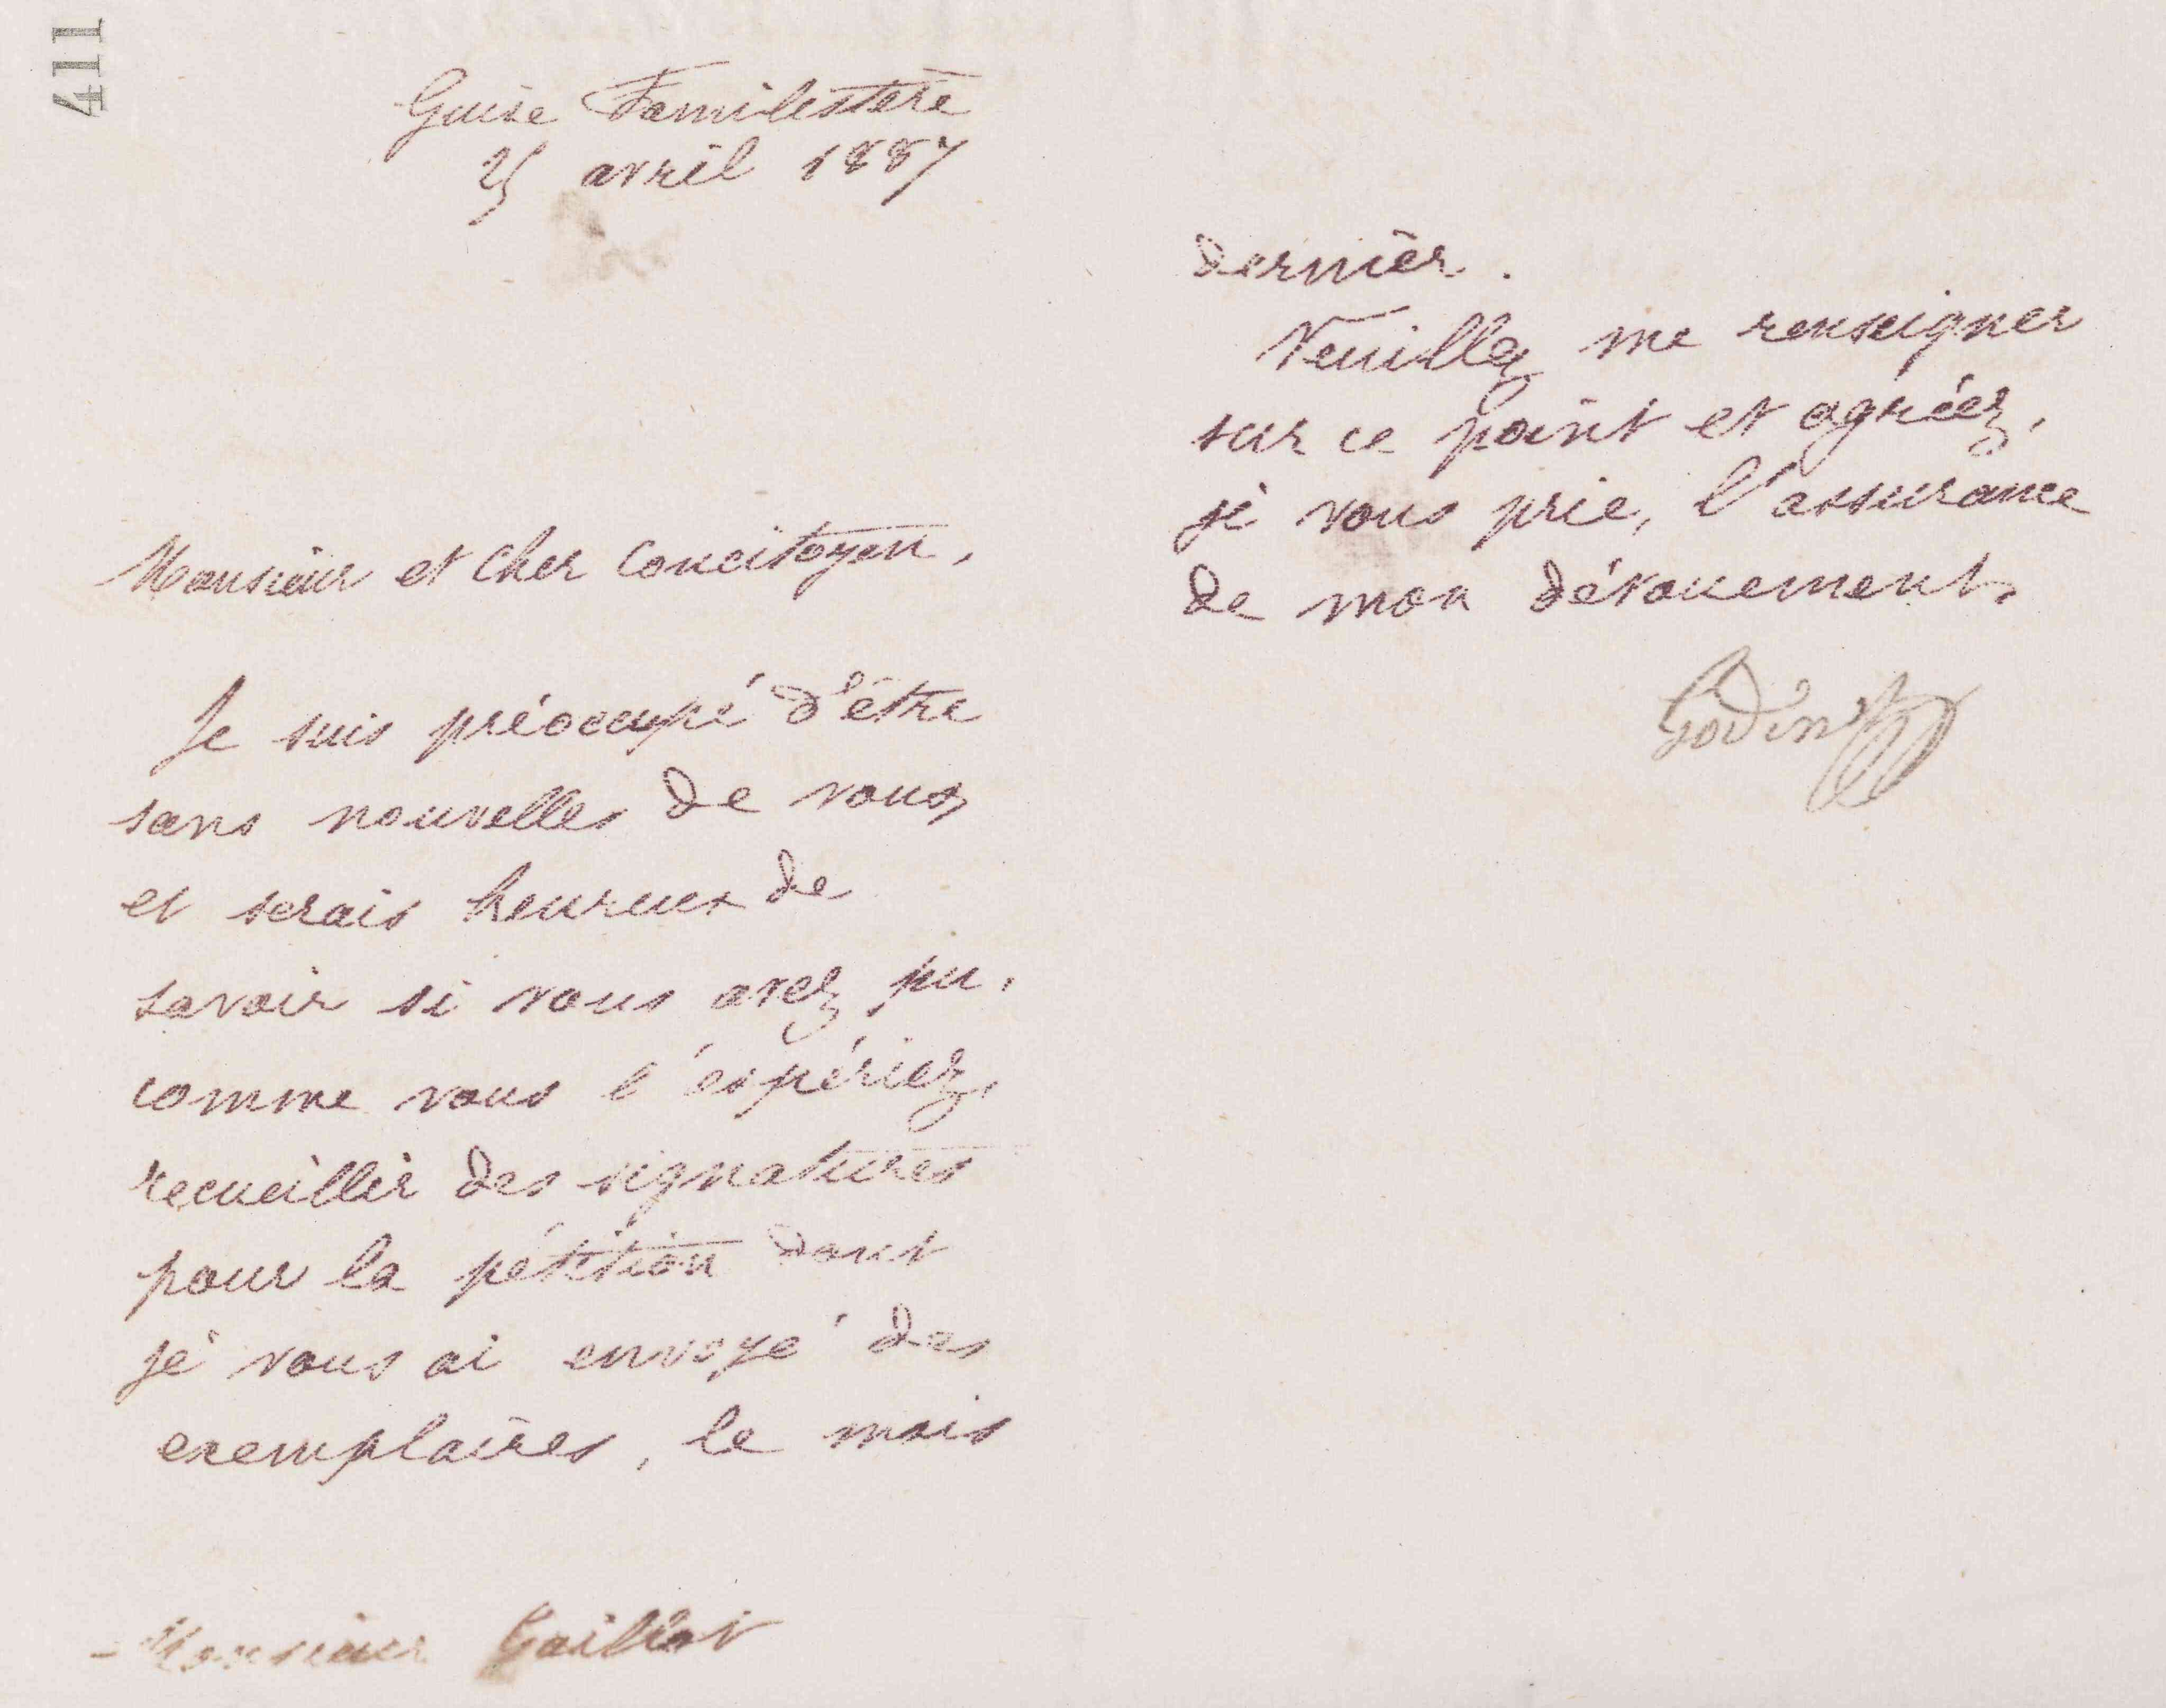 411
Guise Familistère
25 avril 1887
Monsieur et cher concitoyen,
Je suis préoccupé d'être
sans nouvelles de vous,
et serais heureux de
savoir si vous avez pu,
comme vous l'espériez,
recueillir des signatures
pour la pétition dont
je vous ai envoyé des
exemplaires, le mois
Monsieur Gaillot
dernier.
Veuillez me renseigner
sur ce point et agréez,
je vous prie, l'assurance
de mon dévouement.
Godin